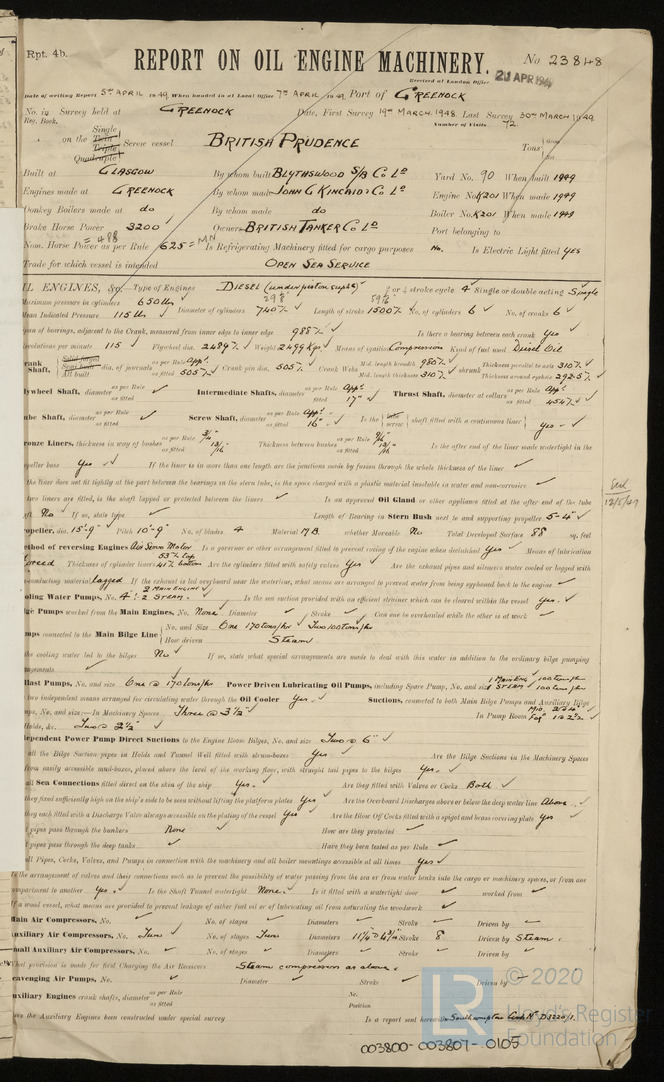 Rpt. 4b.
REPORT ON OIL ENGINE MACHINERY.
No 23848
Received at London Office
Date of writing Report 5th APRIL 1949 When handed in at Local Office 7th APRIL 1949 Port of GREENOCK
No. in Survey held at GREENOCK Date, First Survey 19th MARCH 1948 Last Survey 30th MARCH 1949
Reg. Book. Number of Visits 72
on the Single Twin Triple Quadruple Screw vessel BRITISH PRUDENCE Tons Gross Net
Built at GLASGOW By whom built BLYTHSWOOD S/B Co Ld Yard No. 90 When built 1949
Engines made at GREENOCK By whom made JOHN G KINCAID & Co Ld Engine No. K201 When made 1949
Donkey Boilers made at do By whom made do Boiler No. K201 When made 1949
Brake Horse Power 3200 Owners BRITISH TANKER Co Ld Port belonging to
Nom. Horse Power as per Rule = 488 625 = MN Is Refrigerating Machinery fitted for cargo purposes No. Is Electric Light fitted YES
Trade for which vessel is intended OPEN SEA SERVICE
IL ENGINES, &c. Type of Engines DIESEL 2 or 4 stroke cycle 4 Single or double acting Single
Maximum pressure in cylinders 650 lbs Diameter of cylinders 740 Length of stroke 1500 No. of cylinders 6 No. of cranks 6
Mean Indicated Pressure 115 lbs
pan of bearings, adjacent to the Crank, measured from inner edge to inner edge 988 Is there a bearing between each crank Yes
evolutions per minute 115 Flywheel dia. 2489 Weight 2499 Kgs. Means of ignition Compression Kind of fuel used Diesel Oil
rank Shaft, Solid forged Semi built All built dia. of journals as per Rule App. as fitted 505 Crank pin dia. 505 Crank Webs Mid. length breadth 980 Mid. length thickness 310 shrunk Thickness parallel to axis 310 Thickness around eyehole 292.5
lywheel Shaft, diameter as per Rule as fitted Intermediate Shafts, diameter as per Rule App. as fitted 17" Thrust Shaft, diameter at collars as per Rule App. as fitted 454
ube Shaft, diameter as per Rule as fitted Screw Shaft, diameter as per Rule App. as fitted 16" Is the tube screw shaft fitted with a continuous liner Yes
ronze Liners, thickness in way of bushes as per Rule 3/4 as fitted 13/16 Thickness between bushes as per Rule 9/16 as fitted 13/16 Is the after end of the liner made watertight in the
peller boss Yes If the liner is in more than one length are the junctions made by fusion through the whole thickness of the liner
the liner does not fit tightly at the part between the bearings in the stern tube, is the space charged with a plastic material insoluble in water and non-corrosive
two liners are fitted, is the shaft lapped or protected between the liners Is an approved Oil Gland or other appliance fitted at the after end of the tube
aft No If so, state type Length of Bearing in Stern Bush next to and supporting propeller 5-4"
opeller, dia. 15'-9" Pitch 10'-9" No. of blades 4 Material M.B. whether Moveable No Total Developed Surface 88 sq. feet
ethod of reversing Engines Air Servo Motor Is a governor or other arrangement fitted to prevent racing of the engine when declutched Yes Means of lubrication
orced Thickness of cylinder liners 53 top 41 bottom Are the cylinders fitted with safety valves Yes Are the exhaust pipes and silencers water cooled or lagged with
-conducting material lagged If the exhaust is led overboard near the waterline, what means are arranged to prevent water from being syphoned back to the engine
oling Water Pumps, No. 4: 2 MAIN ENGINE 2 STEAM. Is the sea suction provided with an efficient strainer which can be cleared within the vessel Yes.
lge Pumps worked from the Main Engines, No. None Diameter Stroke Can one be overhauled while the other is at work
umps connected to the Main Bilge Line No. and Size One 170 tons/hr Two 100 tons/hr
How driven Steam
the cooling water led to the bilges No If so, state what special arrangements are made to deal with this water in addition to the ordinary bilge pumping
angements
llast Pumps, No. and size One @ 170 tons/hr Power Driven Lubricating Oil Pumps, including Spare Pump, No. and size 1 MAIN ENG 100 tons/hr 1 STEAM 100 tons/hr
two independent means arranged for circulating water through the Oil Cooler Yes. Suctions, connected to both Main Bilge Pumps and Auxiliary Bilge
mps, No. and size:—In Machinery Spaces Three @ 3½" In Pump Room
Holds, &c. Two @ 2½"
dependent Power Pump Direct Suctions to the Engine Room Bilges, No. and size Two @ 6"
all the Bilge Suction pipes in Holds and Tunnel Well fitted with strum-boxes Yes Are the Bilge Suctions in the Machinery Spaces
from easily accessible mud-boxes, placed above the level of the working floor, with straight tail pipes to the bilges Yes.
all Sea Connections fitted direct on the skin of the ship Yes. Are they fitted with Valves or Cocks Both
they fixed sufficiently high on the ship's side to be seen without lifting the platform plates Yes Are the Overboard Discharges above or below the deep water line Above
they each fitted with a Discharge Valve always accessible on the plating of the vessel Yes Are the Blow Off Cocks fitted with a spigot and brass covering plate Yes
t pipes pass through the bunkers None How are they protected
t pipes pass through the deep tanks Have they been tested as per Rule
all Pipes, Cocks, Valves, and Pumps in connection with the machinery and all boiler mountings accessible at all times Yes
is the arrangement of valves and their connections such as to prevent the possibility of water passing from the sea or from water tanks into the cargo or machinery spaces, or from one
mpartment to another Yes. Is the Shaft Tunnel watertight None. Is it fitted with a watertight door worked from
If a wood vessel, what means are provided to prevent leakage of either fuel oil or of lubricating oil from saturating the woodwork
Main Air Compressors, No. No. of stages Diameters Stroke Driven by
uxiliary Air Compressors, No. Two No. of stages Two Diameters Stroke 8 Driven by Steam.
mall Auxiliary Air Compressors, No. No. of stages Diameters Stroke Driven by
What provision is made for first Charging the Air Receivers Steam compressor as above
cavenging Air Pumps, No. Diameter Stroke Driven by
uxiliary Engines crank shafts, diameter as per Rule as fitted No. Position
ave the Auxiliary Engines been constructed under special survey Is a report sent herewith
12/5/49
003800-003807-0105
LR
© 2020
Lloyd's Register
Foundation